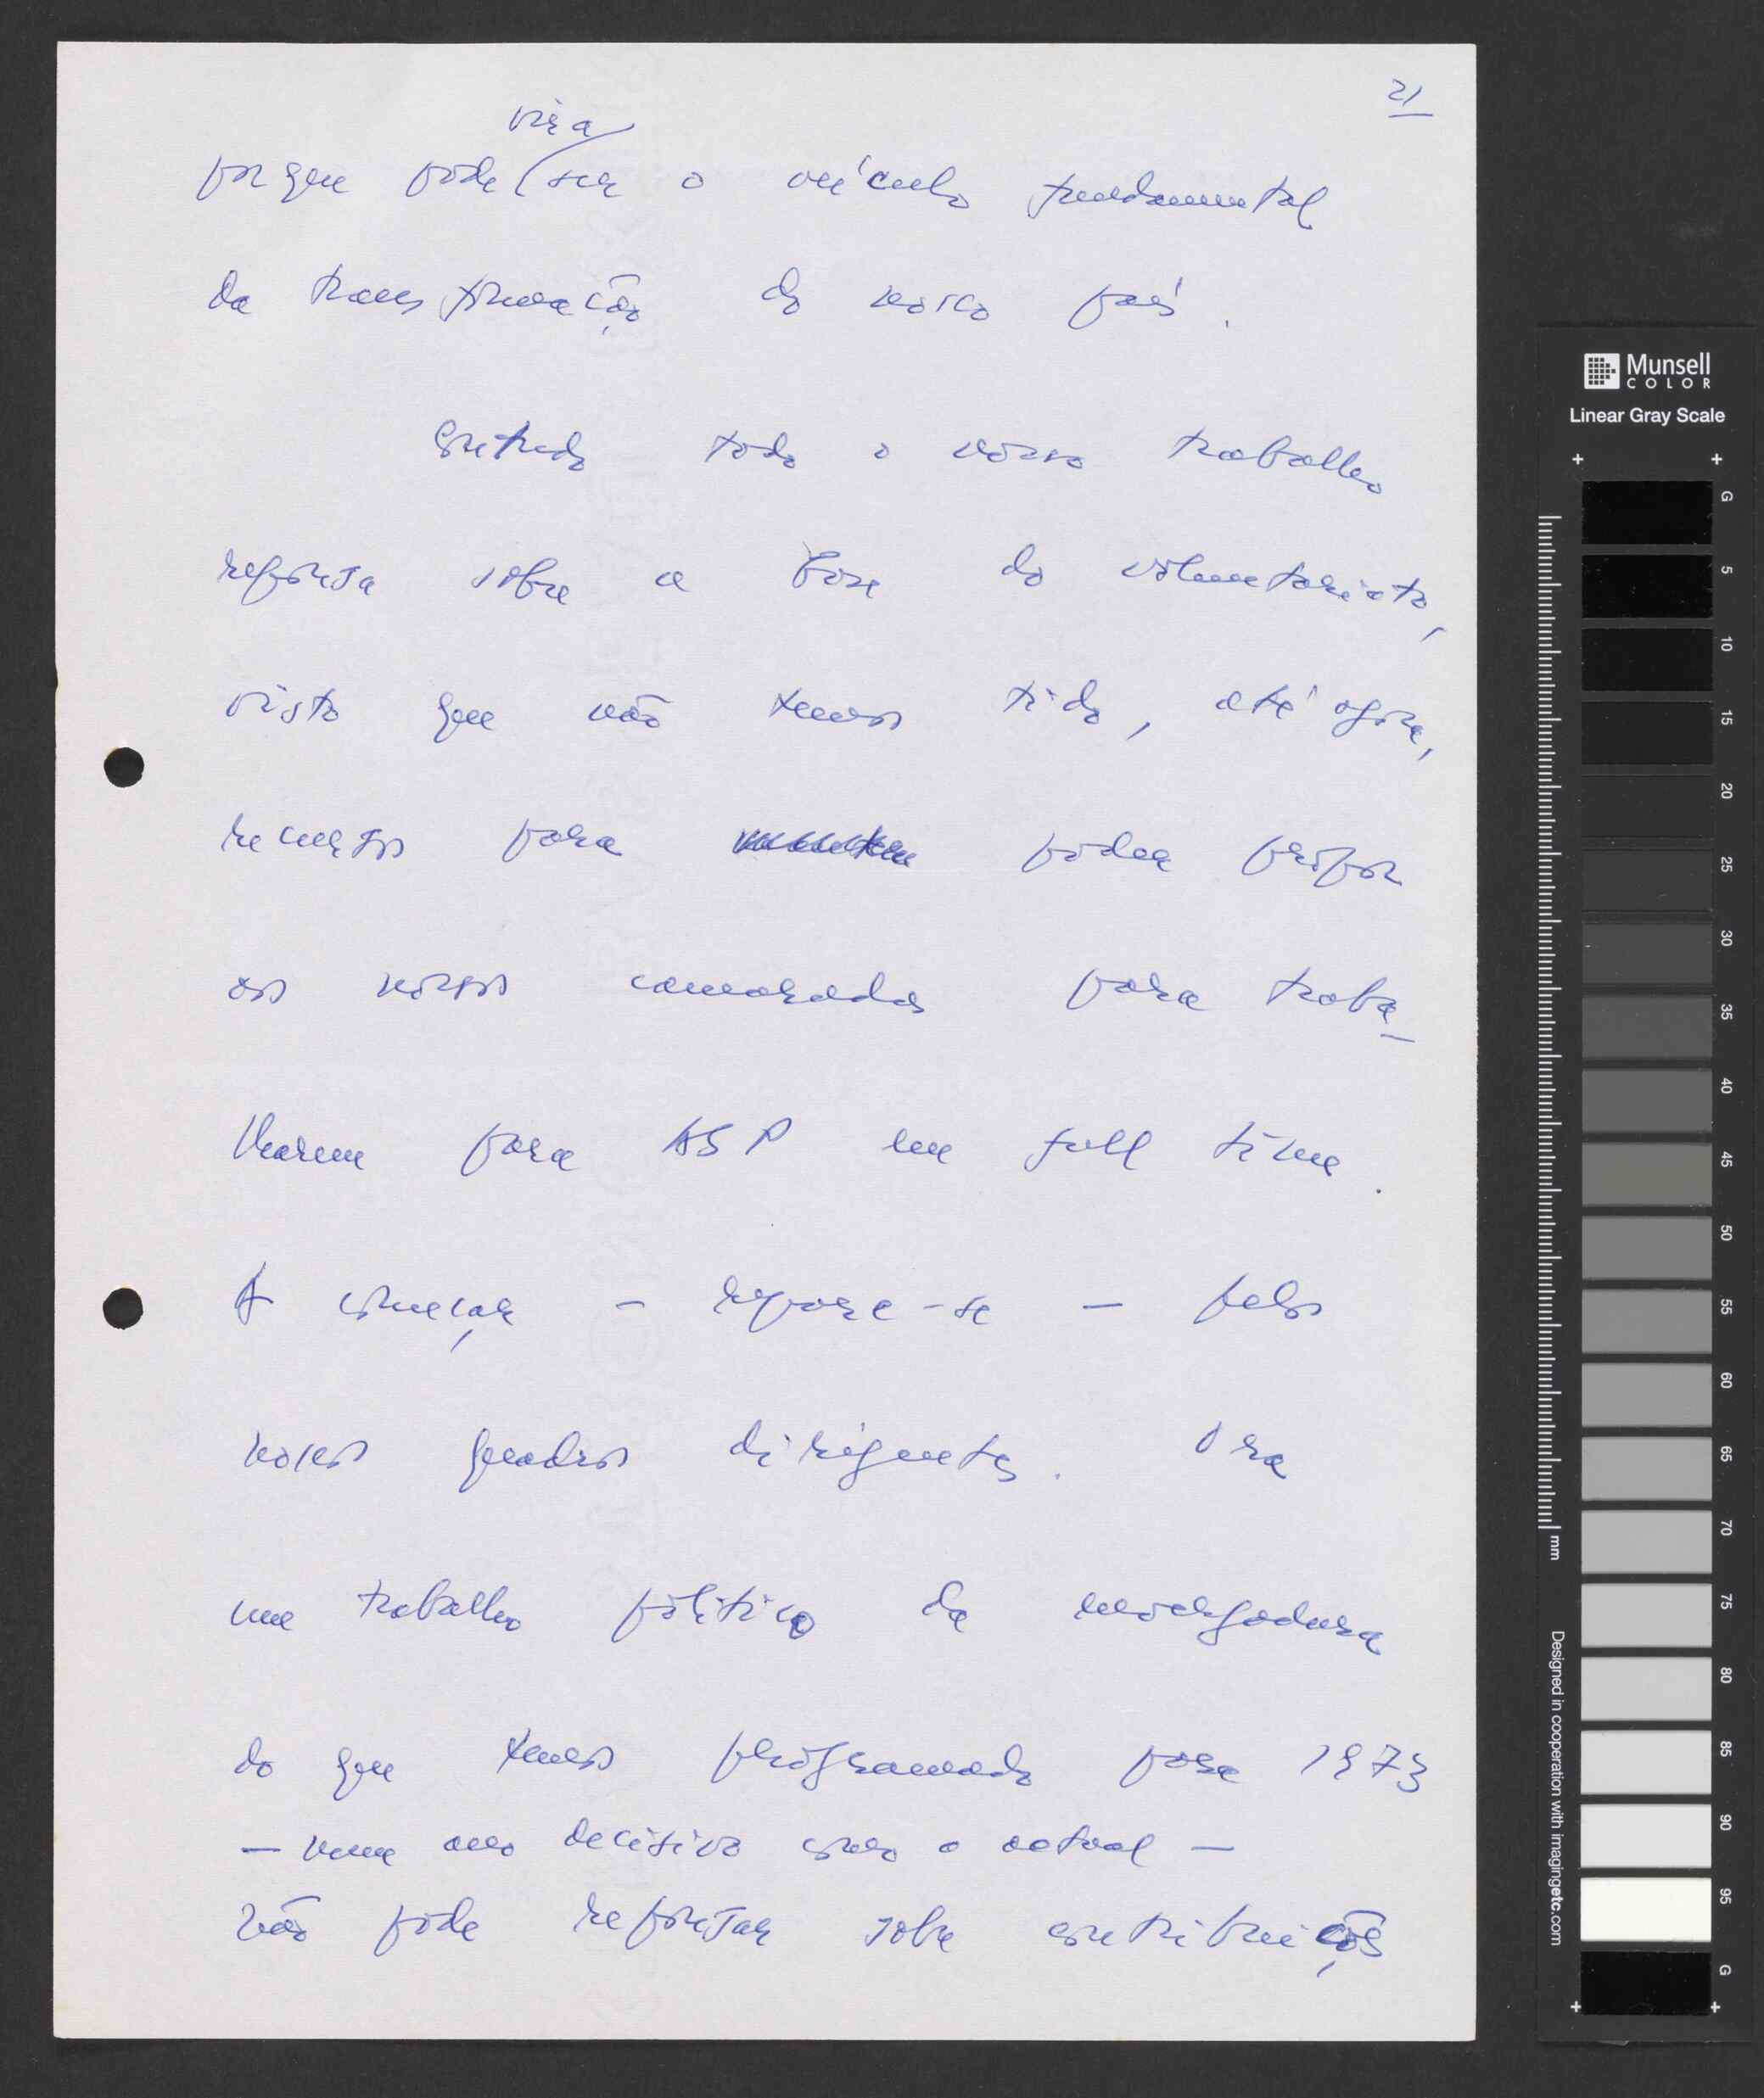 21
vir a
porque pode ser o veículo fundamental
da transformação do nosso país.
Contudo todo o nosso trabalho
repousa sobre a base do voluntariato,
visto que não temos tido, até agora,
recursos para poder propor
aos nossos camaradas para traba-
lharem para ASP em full time.
A começar – repare-se – pelos
nossos quadros dirigentes. Ora
um trabalho político da envergadura
do que temos programado para 1973
– num ano decisivo como o actual –
não pode repousar sobre contribuições
Munsell
COLOR
Linear Gray Scale
G
5
10
15
20
25
30
35
40
45
50
55
60
65
70
75
80
85
90
95
G
mm
Designed in cooperation with imagingetc.com